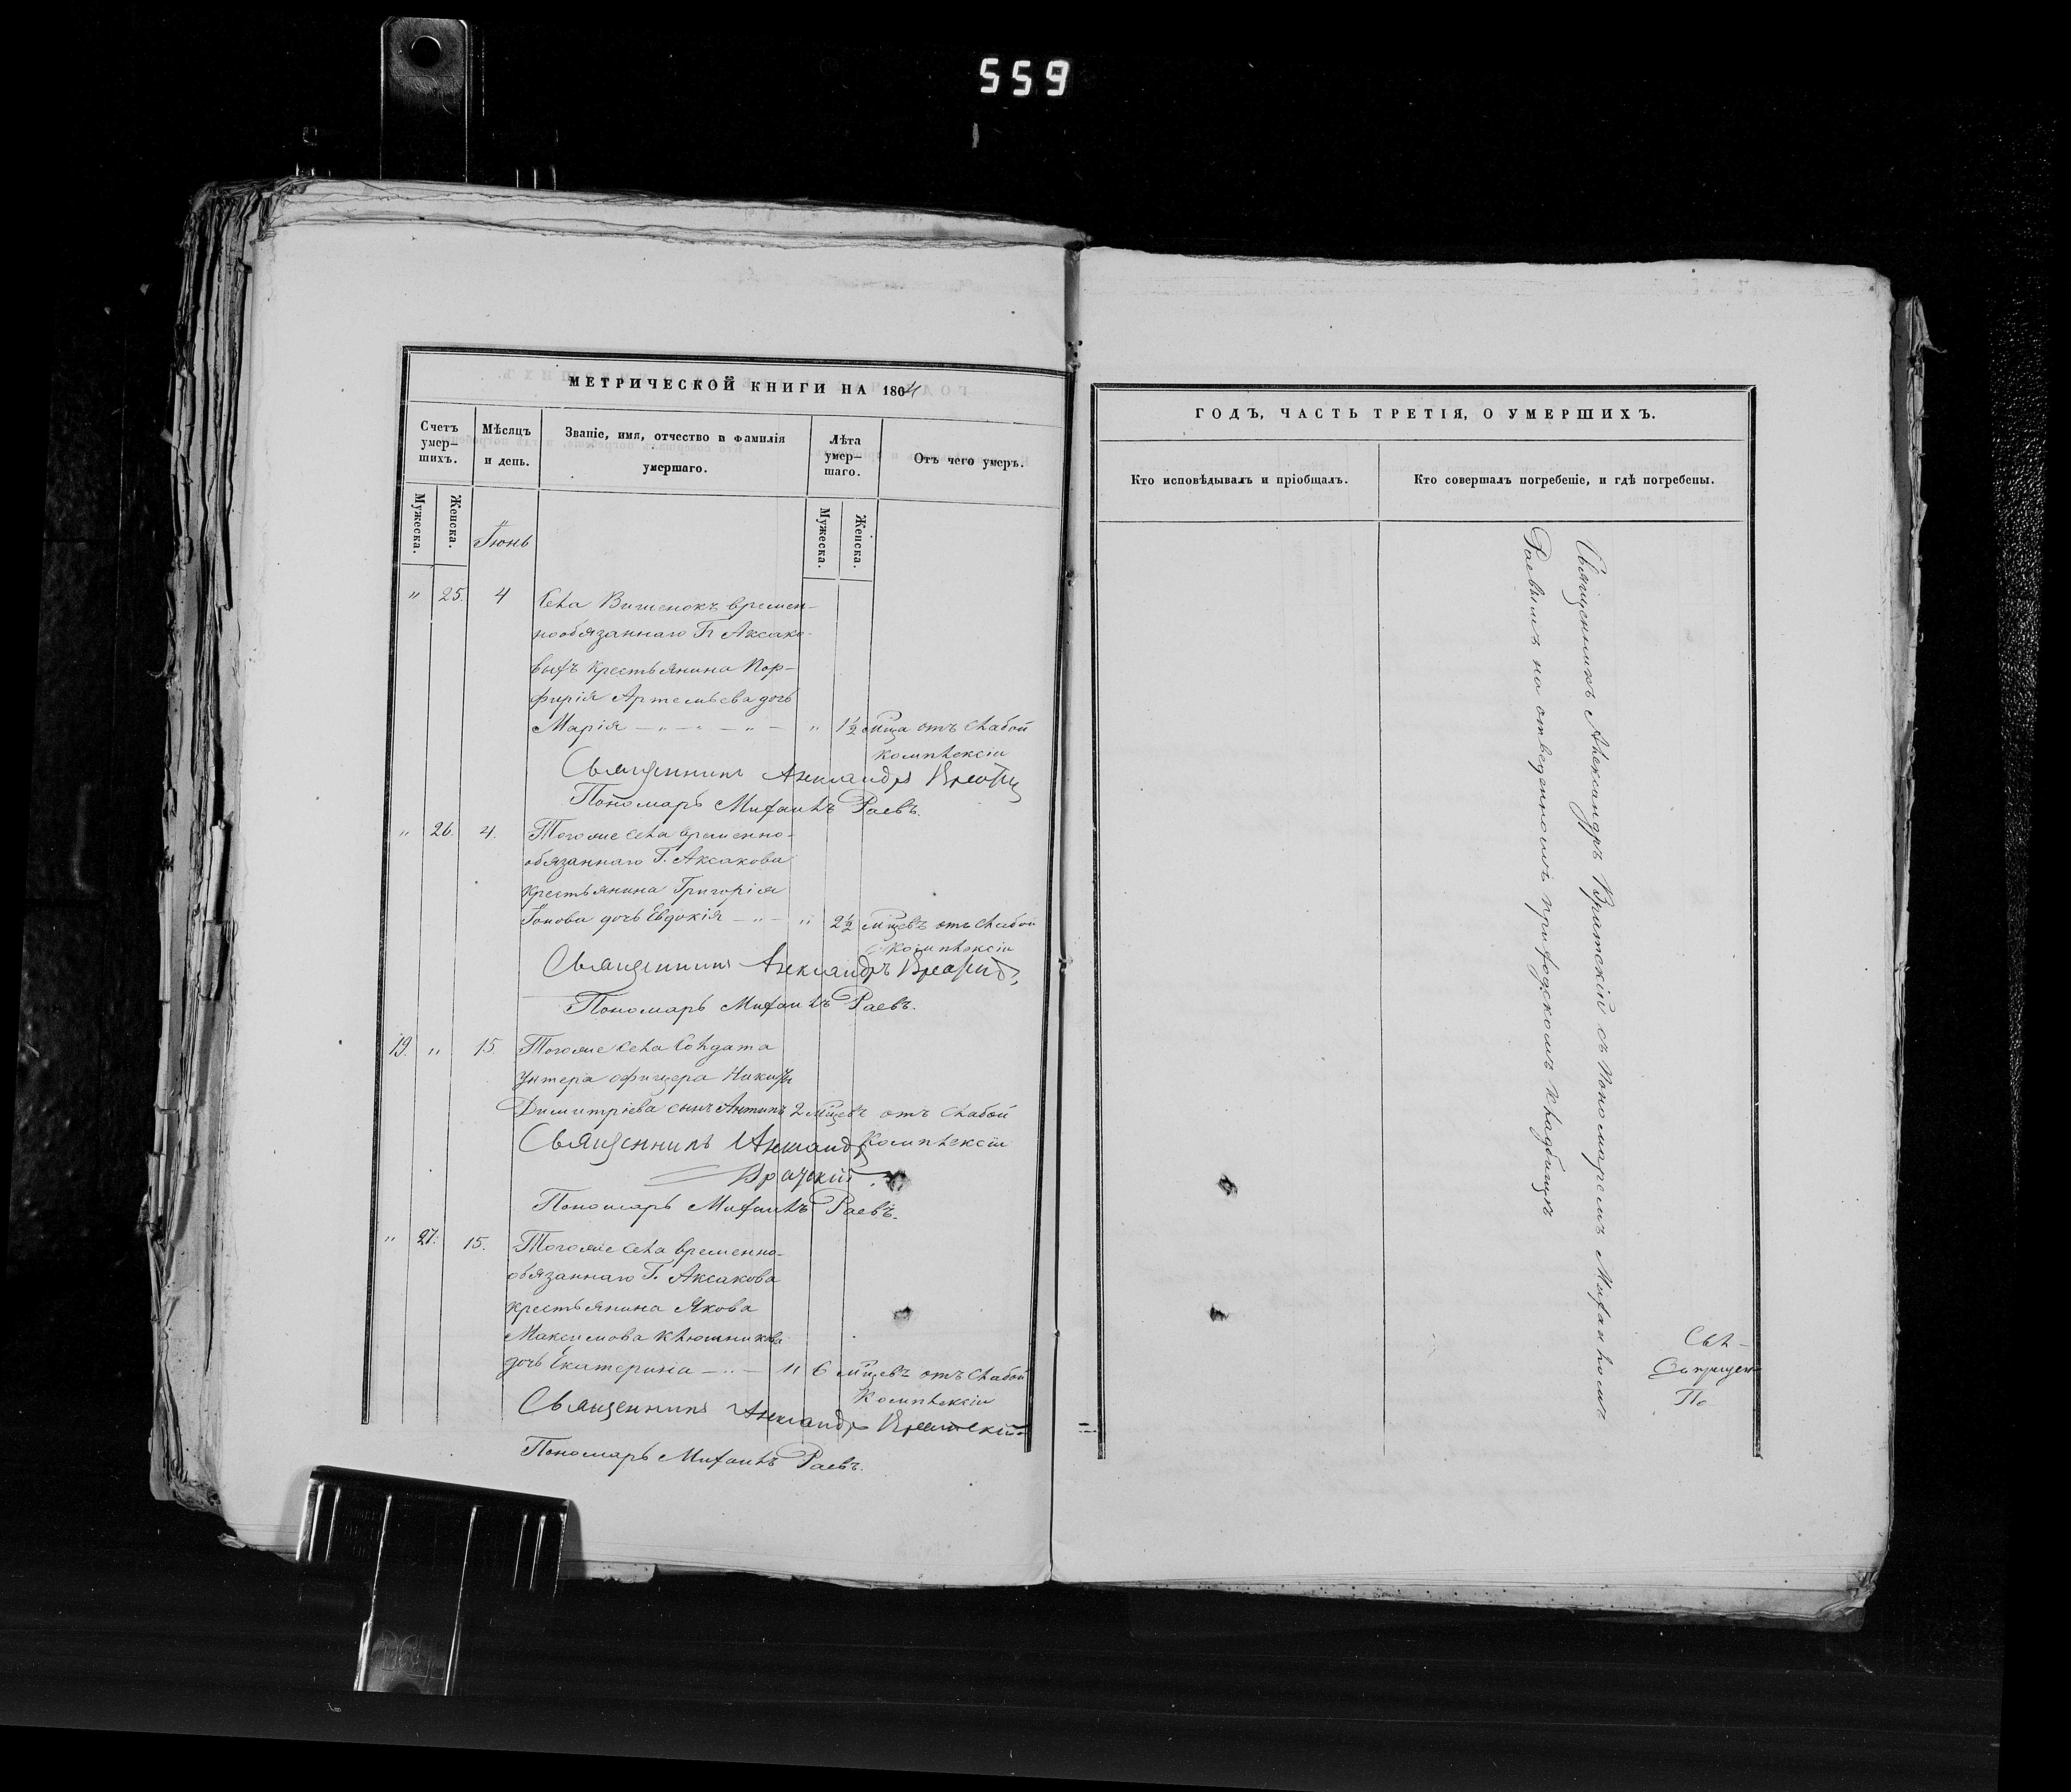 559
МЕТРИЧЕСКОЙ КНИГИ НА 1864
Счетъ умер-
шихъ.
Мѣсяцъ
и день.
Званіе, имя, отчество и фамилія
умершаго.
Лѣта
умер-
шаго.
Отъ чего умеръ.
Мужеска.
Женска.
Мужеска.
Женска.
Іюнь
" 25. 4
Села Вишенокъ времен-
нообязаннаго Гг Аксако-
выхъ крестьянина Пор-
фирія Артемьева дочь
Марія — " — " — " — " 1½ мѣца отъ слабой
комплексіи
Священникъ Александръ
Пономарь Михаилъ Раевъ.
" 26. 4.
Тогоже села временно-
обязаннаго Г. Аксакова
крестьянина Григорія
Іонова дочь Евдокія — " — " 2½ мѣцевъ отъ слабой
комплексіи
Священникъ Александръ
Пономарь Михаилъ Раевъ.
19. " 15.
Тогоже села Солдата
Унтера офицера Никиты
Димитріева сынъ Антипъ 2 мѣцевъ отъ слабой
комплексіи
Священникъ Александръ
Братскій
Пономарь Михаилъ Раевъ.
" 27. 15.
Тогоже села временно-
обязаннаго Г. Аксакова
крестьянина Якова
Максимова Клюшникова
дочь Екатерина — " — " 6 мѣцевъ отъ слабой
комплексіи
Священникъ Александръ Братскій
Пономарь Михаилъ Раевъ.
ГОДЪ, ЧАСТЬ ТРЕТІЯ, О УМЕРШИХЪ.
Кто исповѣдывалъ и пріобщалъ.
Кто совершалъ погребеніе, и гдѣ погребены.
Священникъ Александръ Братскій съ пономаремъ Михаиломъ
Раевымъ на отведенномъ приходскомъ кладбищѣ
По